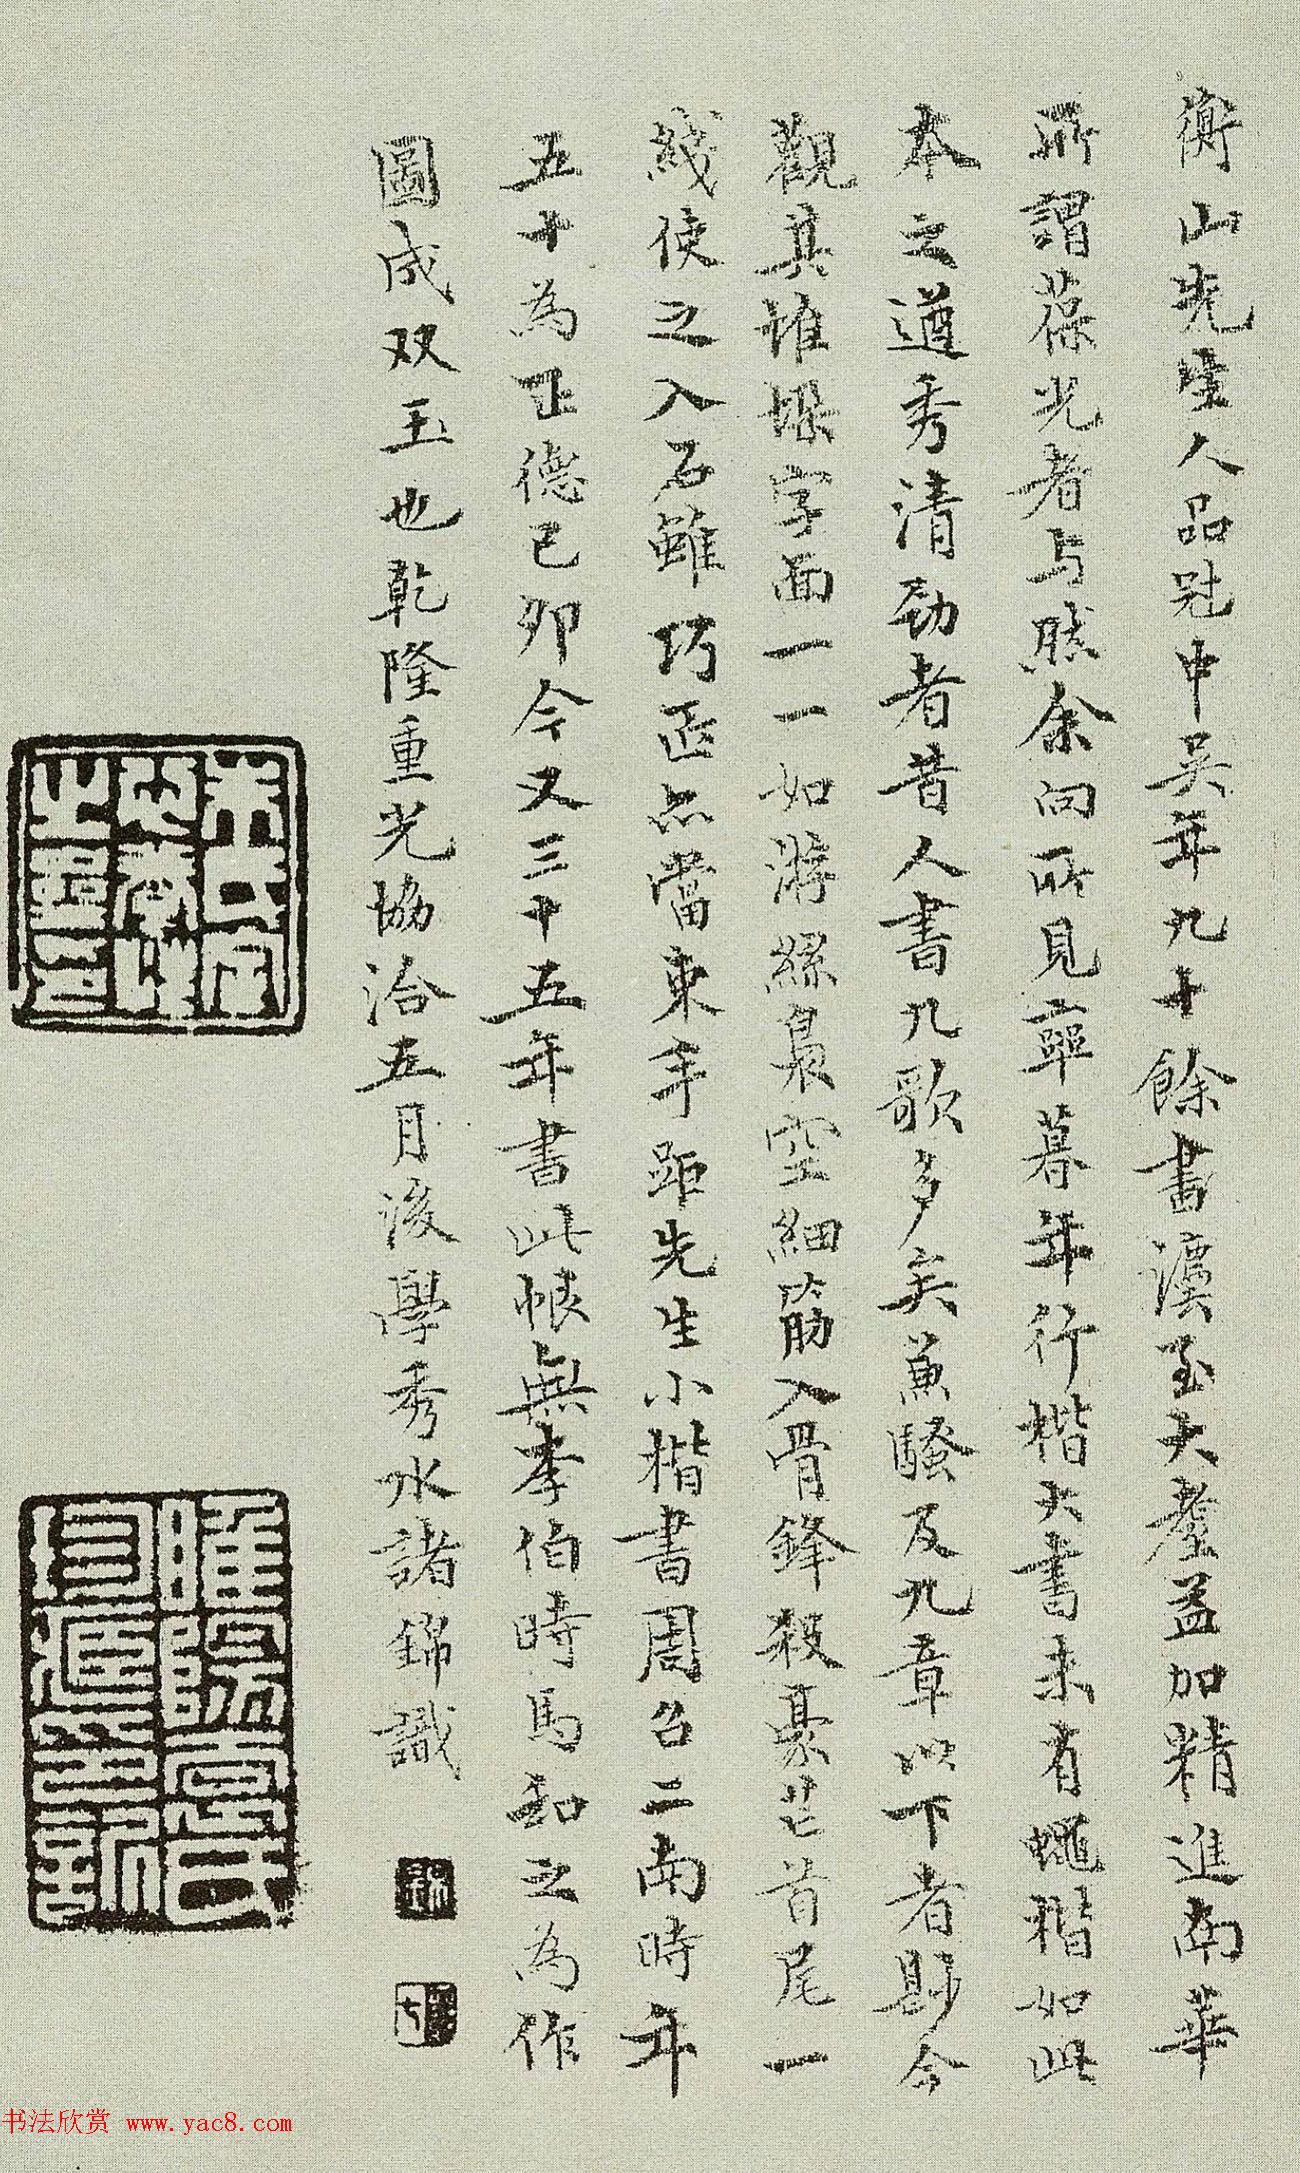 衡山先生人品冠中吳年九十餘書澟至大耋益加精進南華
所謂葆光者与然余向所見率暮年行楷大書未有蠅楷如此
本之遒秀清勁者昔人書九歌多矣兼騷及九章以下者尠今
觀其堆垜字面一一如游絲裊空細筋入骨鋒殺豪芒首尾一
綫使之入石雖巧匠亦當束手距先生小楷書周召二南時年
五十為正德己卯今又三十五年書此恨無李伯時馬和之為作
圖成双玉也乾隆重光協洽五月後學秀水諸錦識
书法欣赏 www.yac8.com